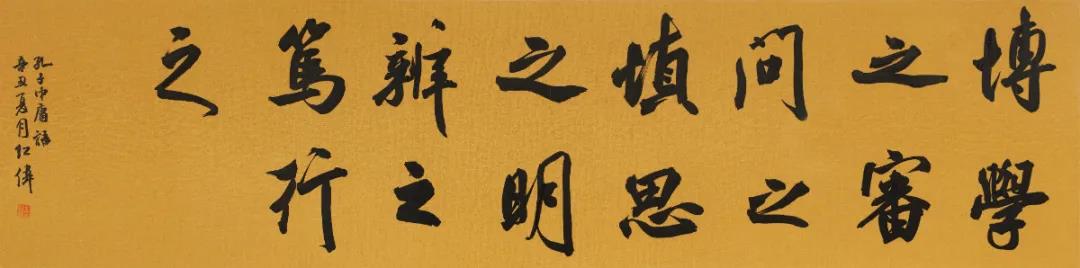 博學
之審
問之
慎思
之明
辨之
篤行
之
孔子中庸語
辛丑夏月紅偉